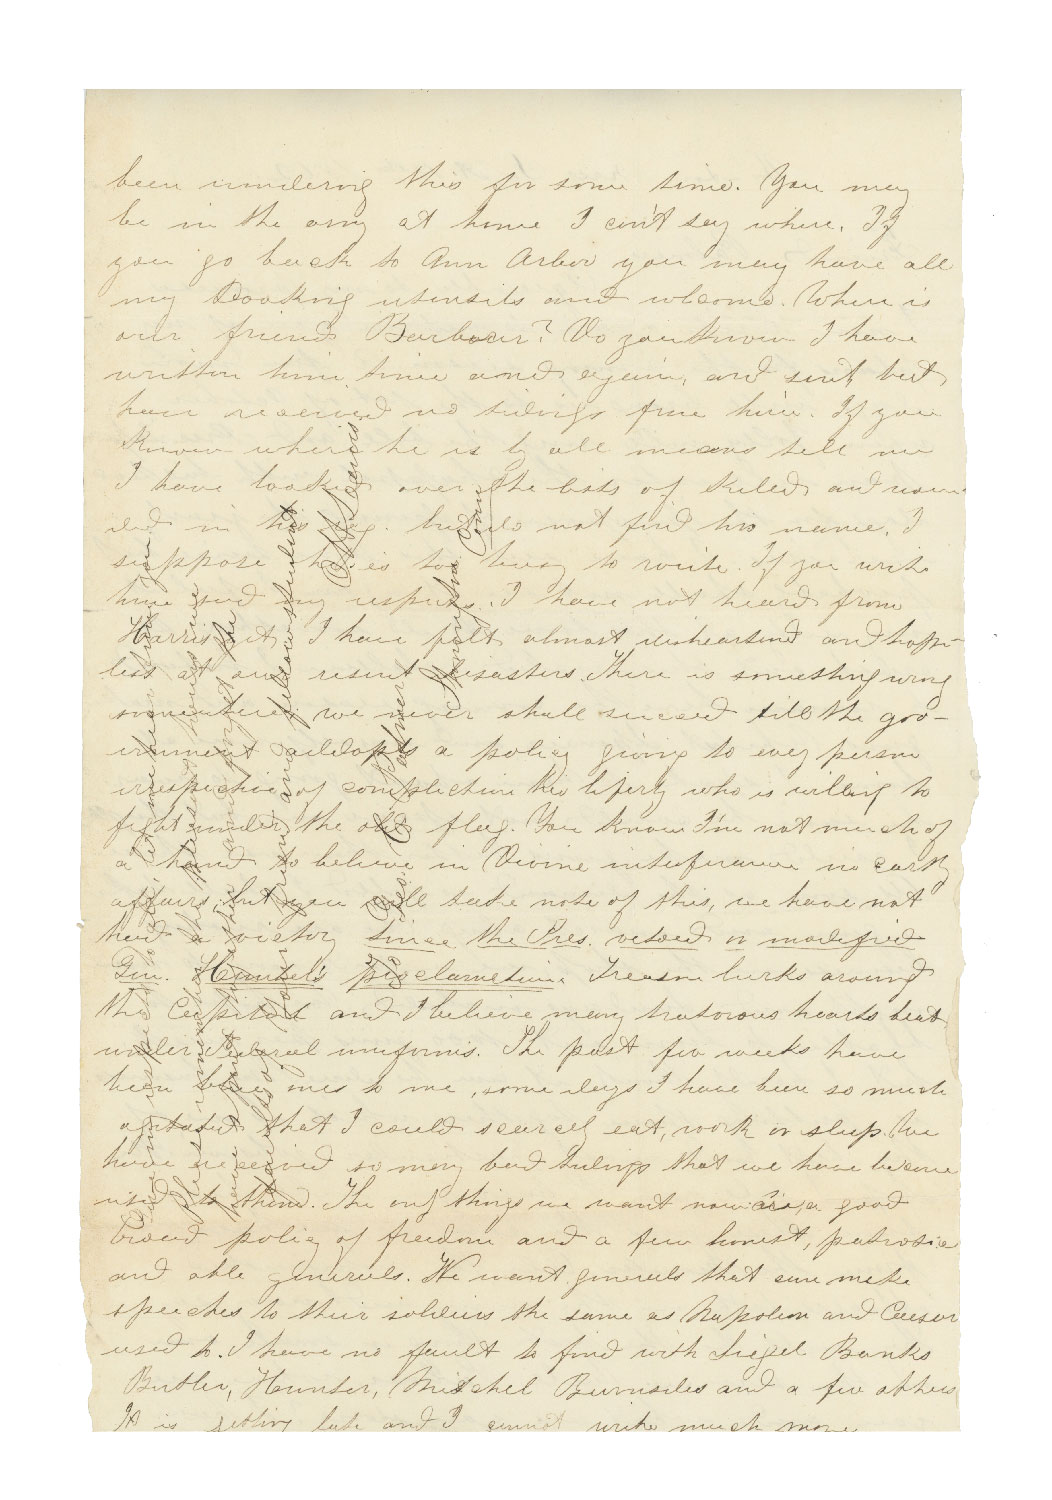 been wondering this for some time. You may
be in the army at home I can't say where. If
you go back to Ann Arbor you may have all
my Cooking utensils and wlcome. Where is
our friend Barbour? Do you know I have
written him time and again, and sent but
have received no tidings from him. If you
know where he is by all means tell me
I have looked over the lists of killed and woun
ded in his reg. but do not find his name. I
suppose he is too busy to write. If you write
him send my respects. I have not heard from
Harris yet. I have felt almost disheartend and hope-
less at our resent disasters. There is something wrong
somewhere, we never shall succeed till the gov-
ernment addopts a policy giving to evey person
irrespective of complection his liferty who is willing to
fight under the old flag. You know I'm not much of
a hand to believe in Divine inteferance in earthy
affairs, but you will take note of this, we have not
had a victory since the Pres. vetoed or modified
Gen. Hunter's Proclamation. Treason lurks around
the Capitol and I believe many traterous hearts beat
under Federal uniforms. The past few weeks have
been blue ones to me, some days I have been so much
agitated that I could scarcely eat, work or sleep. We
have received so many bad tidings that we have become
used to them. The only things we want now is a good
broad policy of freedom and a few honest, patrotic
and able generals. We want generals that can make
speeches to their soldiers the same as Napoleon and Caesar
used to. I have no fault to find with Siegel Banks
Butler, Hunter, Mitchel Burnsides and a few others
It is getting late and I cannot write much more
give my respects to
Please remember
your friend and fellow student
Geo.